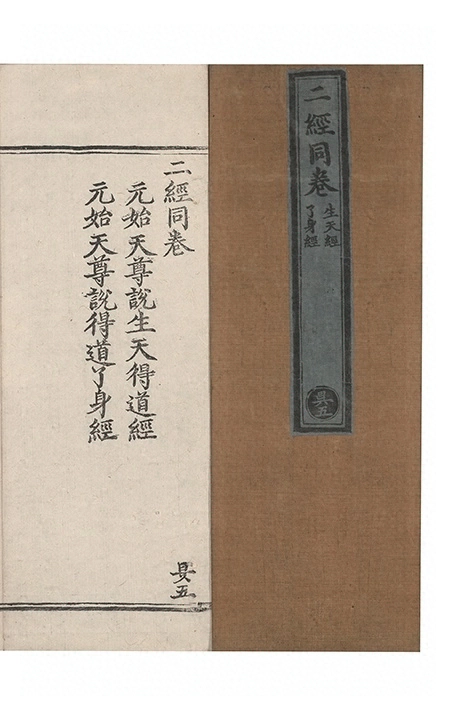 二經同卷
生天經
了身經
昃五
二經同卷
元始天尊說生天得道經
元始天尊說得道了身經
昃五